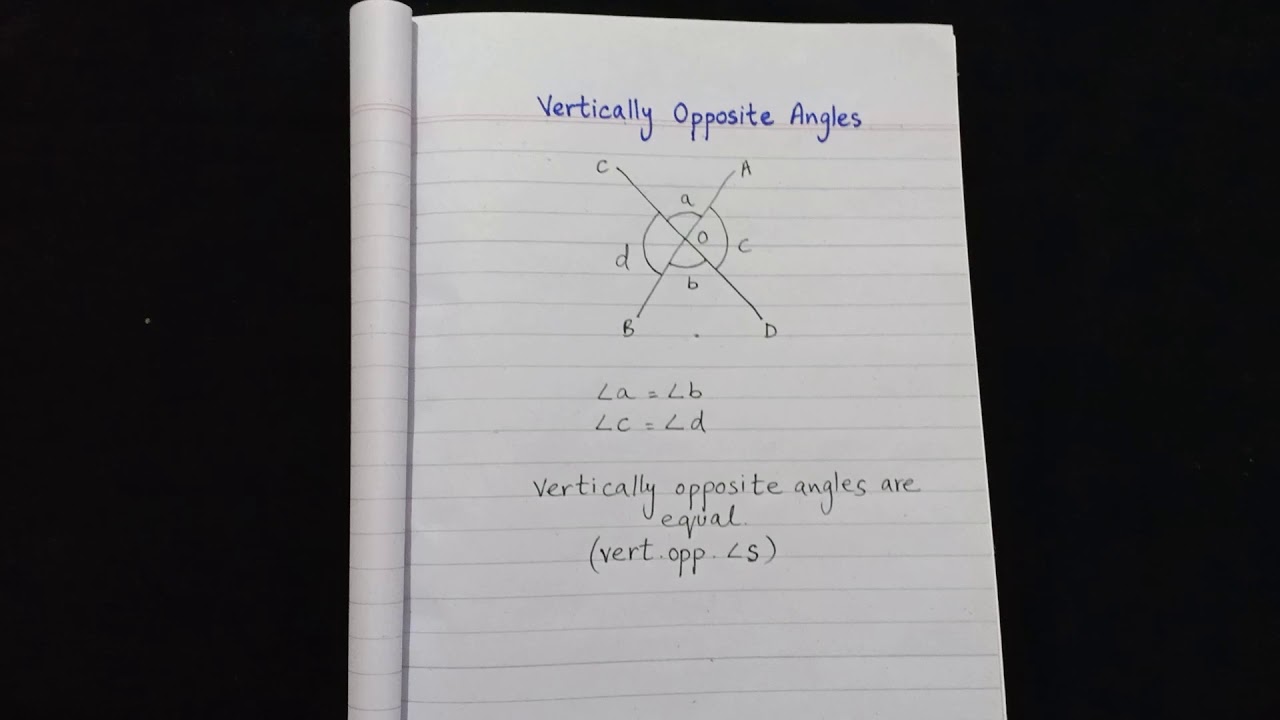 Vertically Opposite Angles
C A
a
O
d c
b
B D
∠a = ∠b
∠c = ∠d
Vertically opposite angles are
equal.
(vert. opp. ∠s)